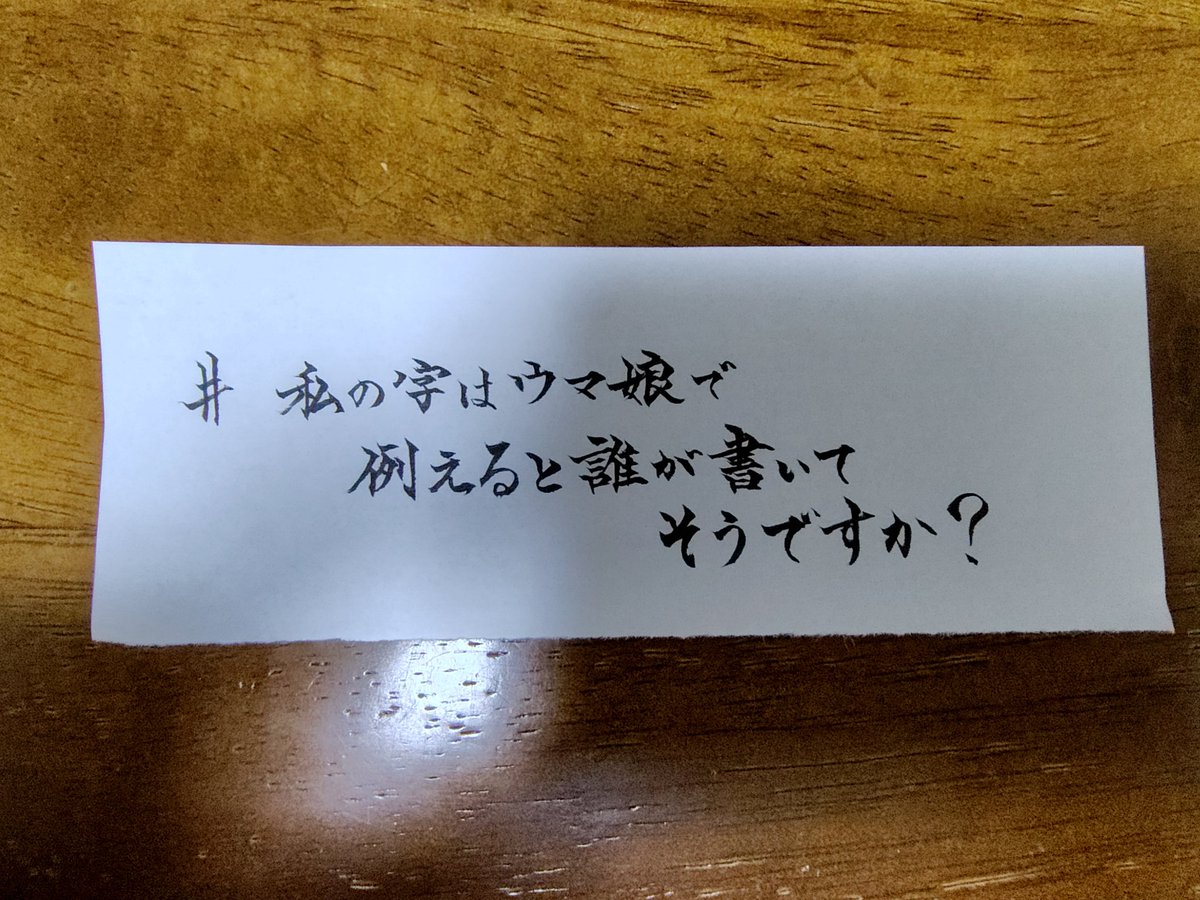 # 私の字はウマ娘で
例えると誰が書いて
そうですか?